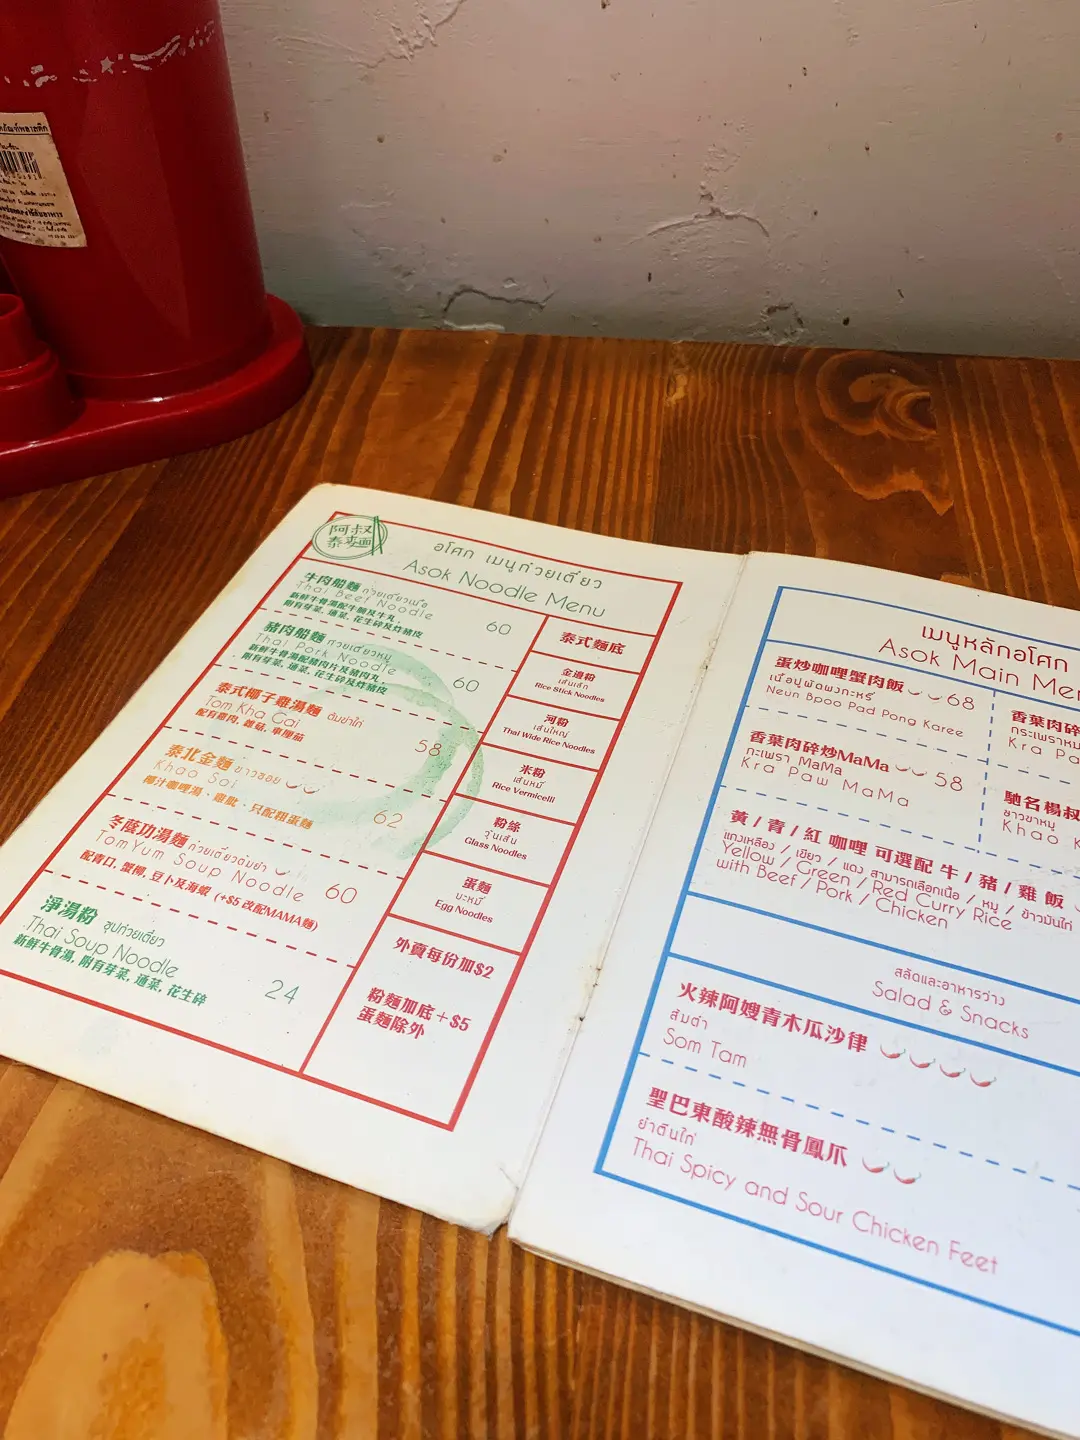 阿叔
泰麵
อโศก เมนูก๋วยเตี๋ยว
Asok Noodle Menu
牛肉船麵 ก๋วยเตี๋ยวเนื้อ
Thai Beef Noodle
新鮮牛骨湯配牛腩及牛丸,
附有芽菜, 通菜, 花生碎及炸豬皮
60
豬肉船麵 ก๋วยเตี๋ยวหมู
Thai Pork Noodle
新鮮牛骨湯配豬肉片及豬肉丸,
附有芽菜, 通菜, 花生碎及炸豬皮
60
泰式椰子雞湯麵 ต้มข่าไก่
Tom Kha Gai
配有雞肉, 雜菇, 車厘茄
58
泰北金麵 ข้าวซอย
Khao Soi
椰汁咖喱湯、雞肶，只配粗蛋麵
62
冬蔭功湯麵 ก๋วยเตี๋ยวต้มยำ
TomYum Soup Noodle
配青口, 蟹柳, 豆卜及海蝦 (+$5 改配MAMA麵)
60
淨湯粉 ซุปก๋วยเตี๋ยว
Thai Soup Noodle
新鮮牛骨湯, 附有芽菜, 通菜, 花生碎
24
泰式麵底
金邊粉
เส้นเล็ก
Rice Stick Noodles
河粉
เส้นใหญ่
Thai Wide Rice Noodles
米粉
เส้นหมี่
Rice Vermicelli
粉絲
วุ้นเส้น
Glass Noodles
蛋麵
บะหมี่
Egg Noodles
外賣每份加$2
粉麵加底+$5
蛋麵除外
เมนูหลักอโศก
Asok Main Men
蛋炒咖哩蟹肉飯 68
เนื้อปูผัดผงกะหรี่
Neun Bpoo Pad Pong Karee
香葉肉碎炒MaMa 58
กะเพรา MaMa
Kra Paw MaMa
香葉肉碎
กระเพราหม
Kra Pa
馳名楊叔
ข้าวขาหมู
Khao K
黃/青/紅 咖哩 可選配 牛/豬/雞 飯
แกงเหลือง / เขียว / แดง สามารถเลือกเนื้อ / หมู / ข้าวมันไก่
Yellow / Green / Red Curry Rice
with Beef / Pork / Chicken
สลัดและอาหารว่าง
Salad & Snacks
火辣阿嫂青木瓜沙律
ส้มตำ
Som Tam
聖巴東酸辣無骨鳳爪
ยำตีนไก่
Thai Spicy and Sour Chicken Feet